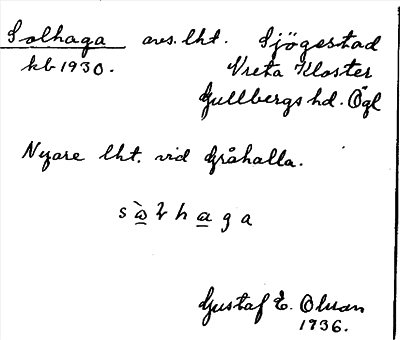 Solhaga avs. lht. Sjögestad
kb 1930. Vreta Kloster
Gullbergs hd. Ögl
Nyare lht. vid Gråhalla.
Gustaf E. Olsson
1936.